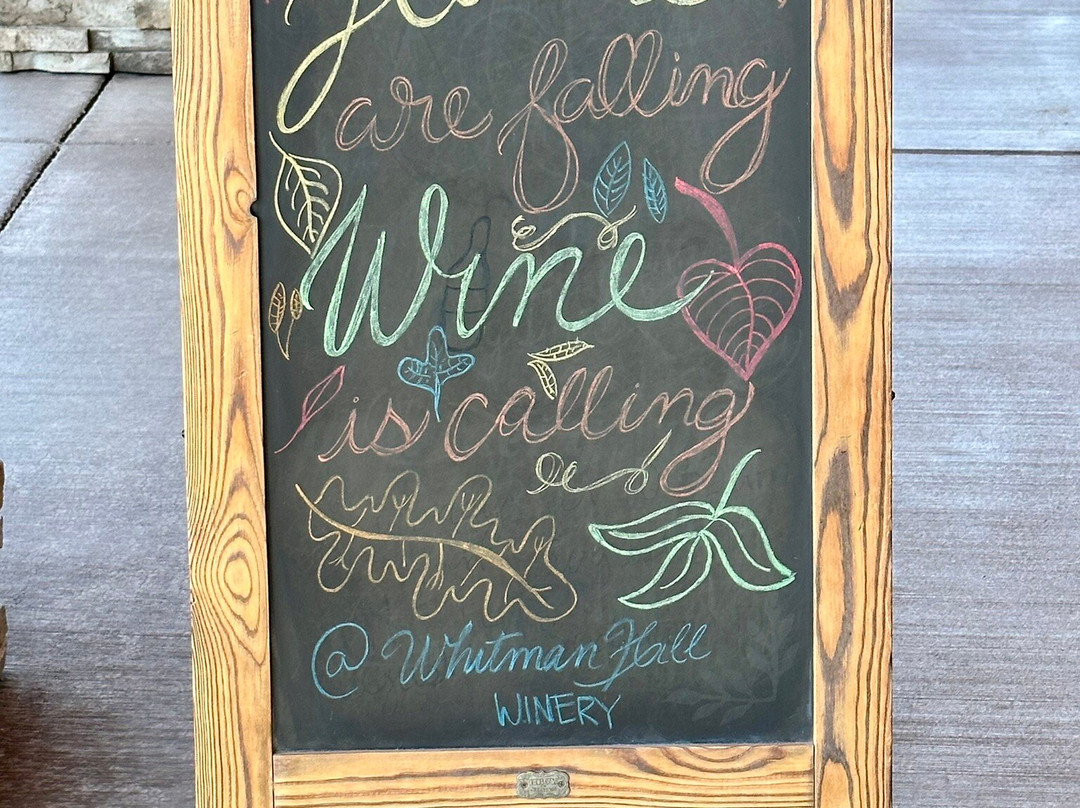 are falling
Wine
is calling
@ Whitman Hill
WINERY